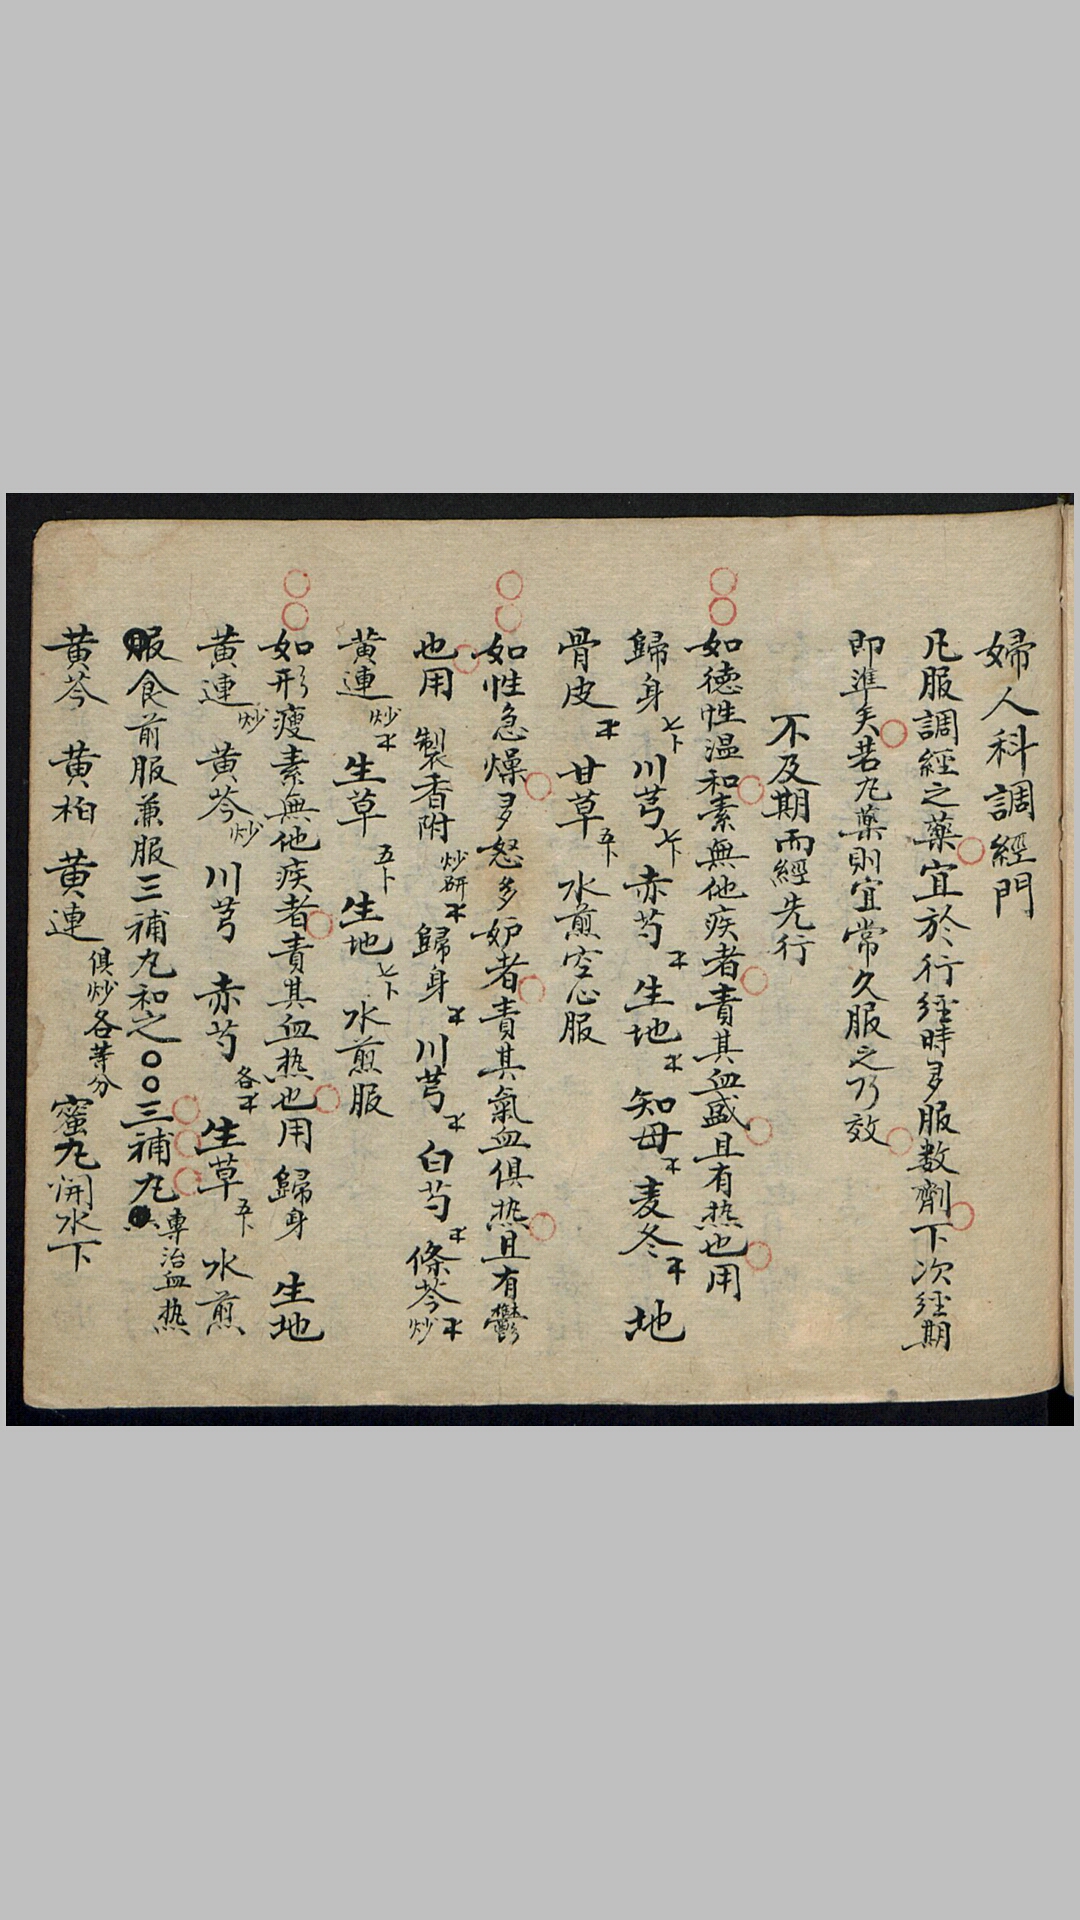 婦人科調經門
凡服調經之藥宜於行经時多服数劑下次经期
即準矣若丸藥則宜常久服之乃效
不及期而經先行
如德性温和素無他疾者責其血盛且有热也用
歸身七卜 川芎七卜 赤芍 生地 知母 麦冬 地
骨皮 甘草五卜 水煎空心服
如性急燥多怒多妒者責其氣血俱热且有鬱
也用 製香附炒研 歸身 川芎 白芍 條芩炒
黄連炒 生草五卜 生地七卜 水煎服
如形瘦素無他疾者責其血热也用 歸身 生地
黄連炒 黄芩炒 川芎 赤芍各 生草五卜 水煎
服食前服兼服三補丸和之〇〇三補丸專治血热
黄芩 黄柏 黄連俱炒各等分蜜丸開水下